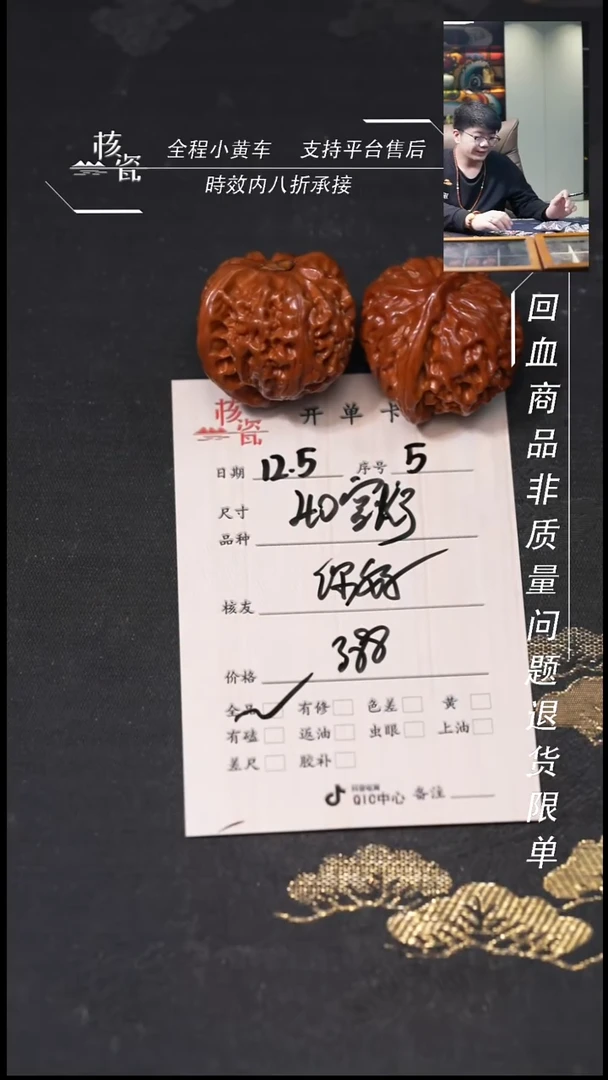 核瓷
全程小黄车 支持平台售后
時效内八折承接
回血商品非质量问题退货限单
核瓷
开单卡
日期 12.5 序号 5
尺寸 40
品种
核友 你好
价格 388
全品 有修 色差 黄
有磕 返油 虫眼 上油
差尺 胶补
抖音电商
QIC中心 备注